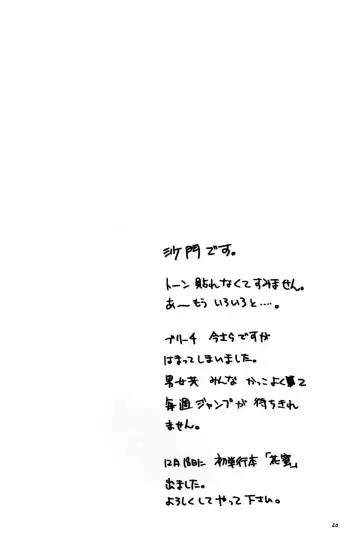 沙門です。
トーン貼れなくてすみません。
あ〜もう いろいろと……。
ブリーチ 今さらですが
はまってしまいました。
男女共 みんな かっこよく
毎週ジャンプが 待ちきれ
ません。
12月18日に 初単行本「花蜜」
出ました。
よろしくしてやって下さい。
20